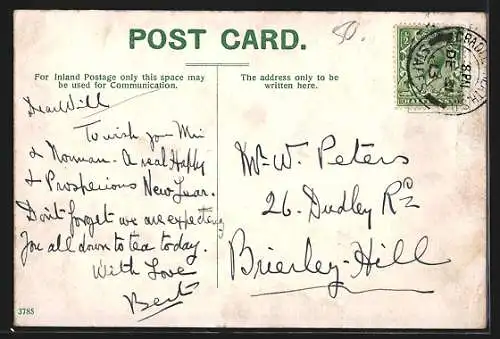 POST CARD.
50.
For Inland Postage only this space may
be used for Communication.
The address only to be
written here.
Dear Will
To wish you Min
& Norman. A real Happy
& Prosperious New Year.
Don't forget we are expecting
you all down to tea today.
With Love
Bert
Mr W. Peters
26. Dudley Rd
Brierley-Hill
3785
CRADLEY HEATH
8 PM
DE 31
STAFFS